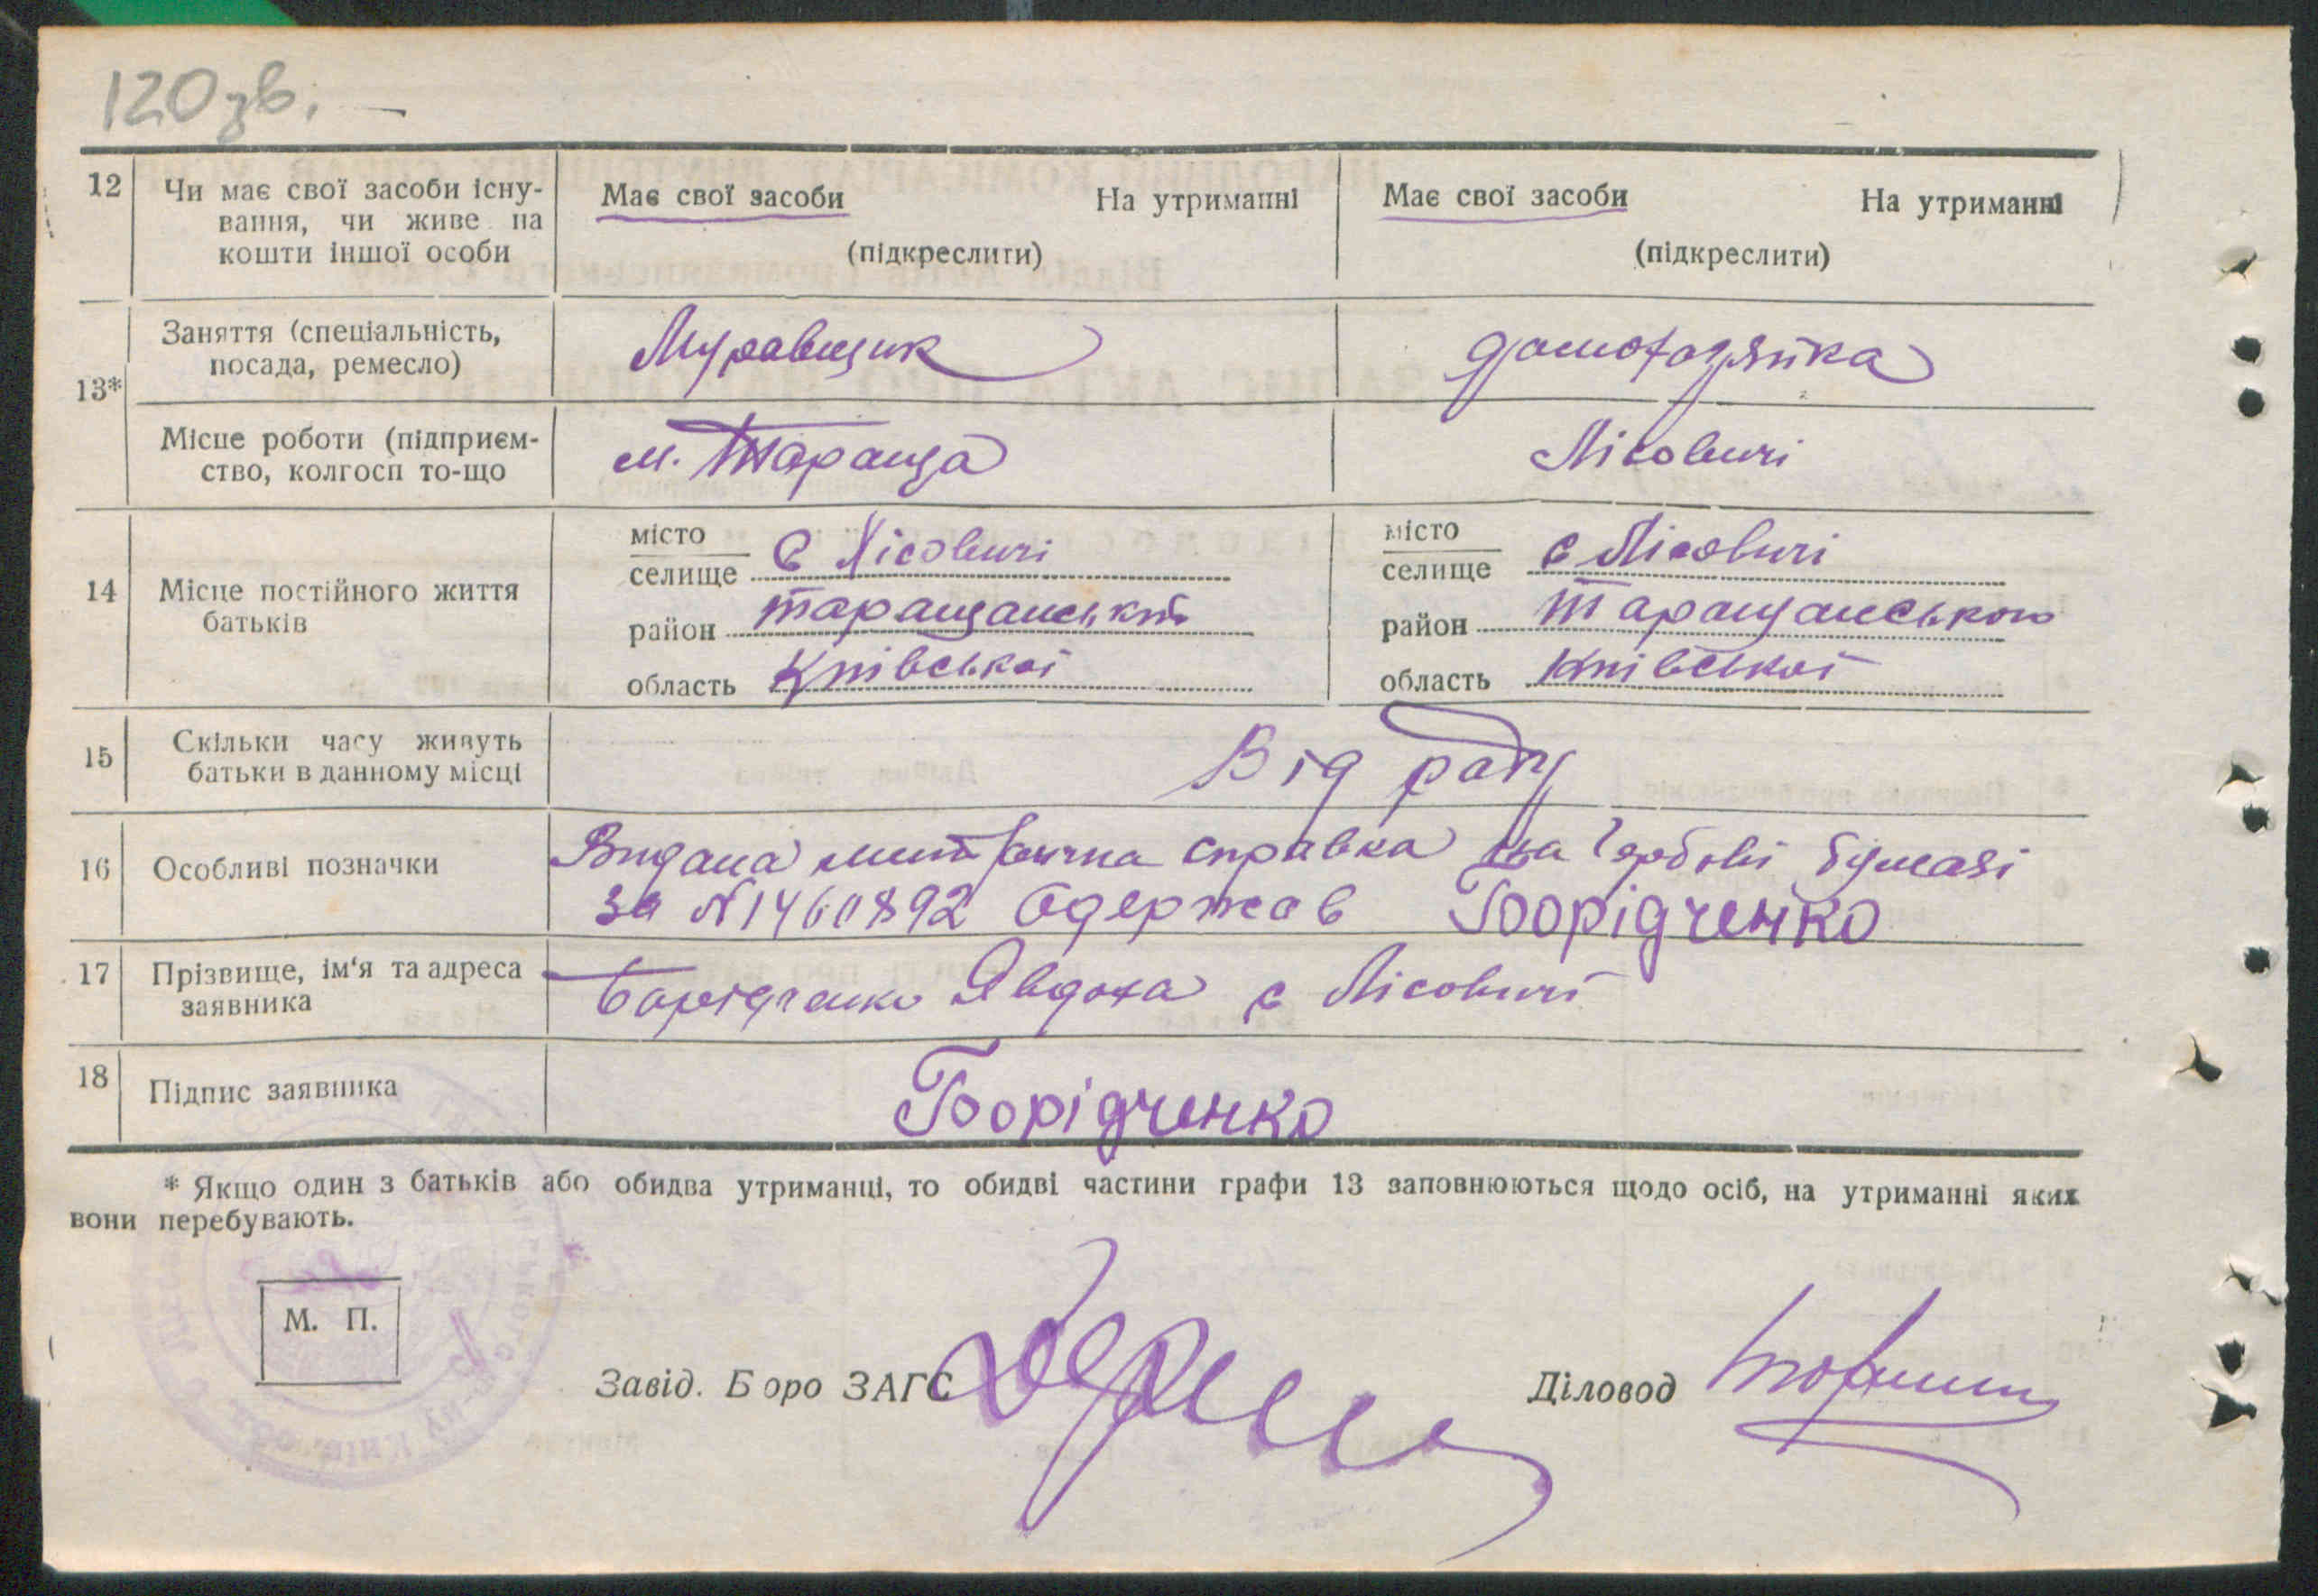 120 зв.
12 Чи має свої засоби існу- Має свої засоби На утриманні Має свої засоби На утриманні
вання, чи живе на
кошти іншої особи (підкреслити) (підкреслити)
Заняття (спеціальність, Муравщик домохазяйка
посада, ремесло)
13*
Місце роботи (підприєм- м. Тараща Лісовичі
ство, колгосп то-що
місто с Лісовичі місто с Лісовичі
селище селище
14 Місце постійного життя район Таращанський район Таращанського
батьків
область Київської область Київської
15 Скільки часу живуть Від роду
батьки в данному місці
16 Особливі позначки Видана справка на гербові бумазі
за №1460892 Одержав Боорідченко
17 Прізвище, ім'я та адреса Борідченко Явдоха с Лісовичі
заявника
18 Підпис заявника Боорідченко
* Якщо один з батьків або обидва утриманці, то обидві частини графи 13 заповнюються щодо осіб, на утриманні яких
вони перебувають.
М. П.
Завід. Бюро ЗАГС Діловод